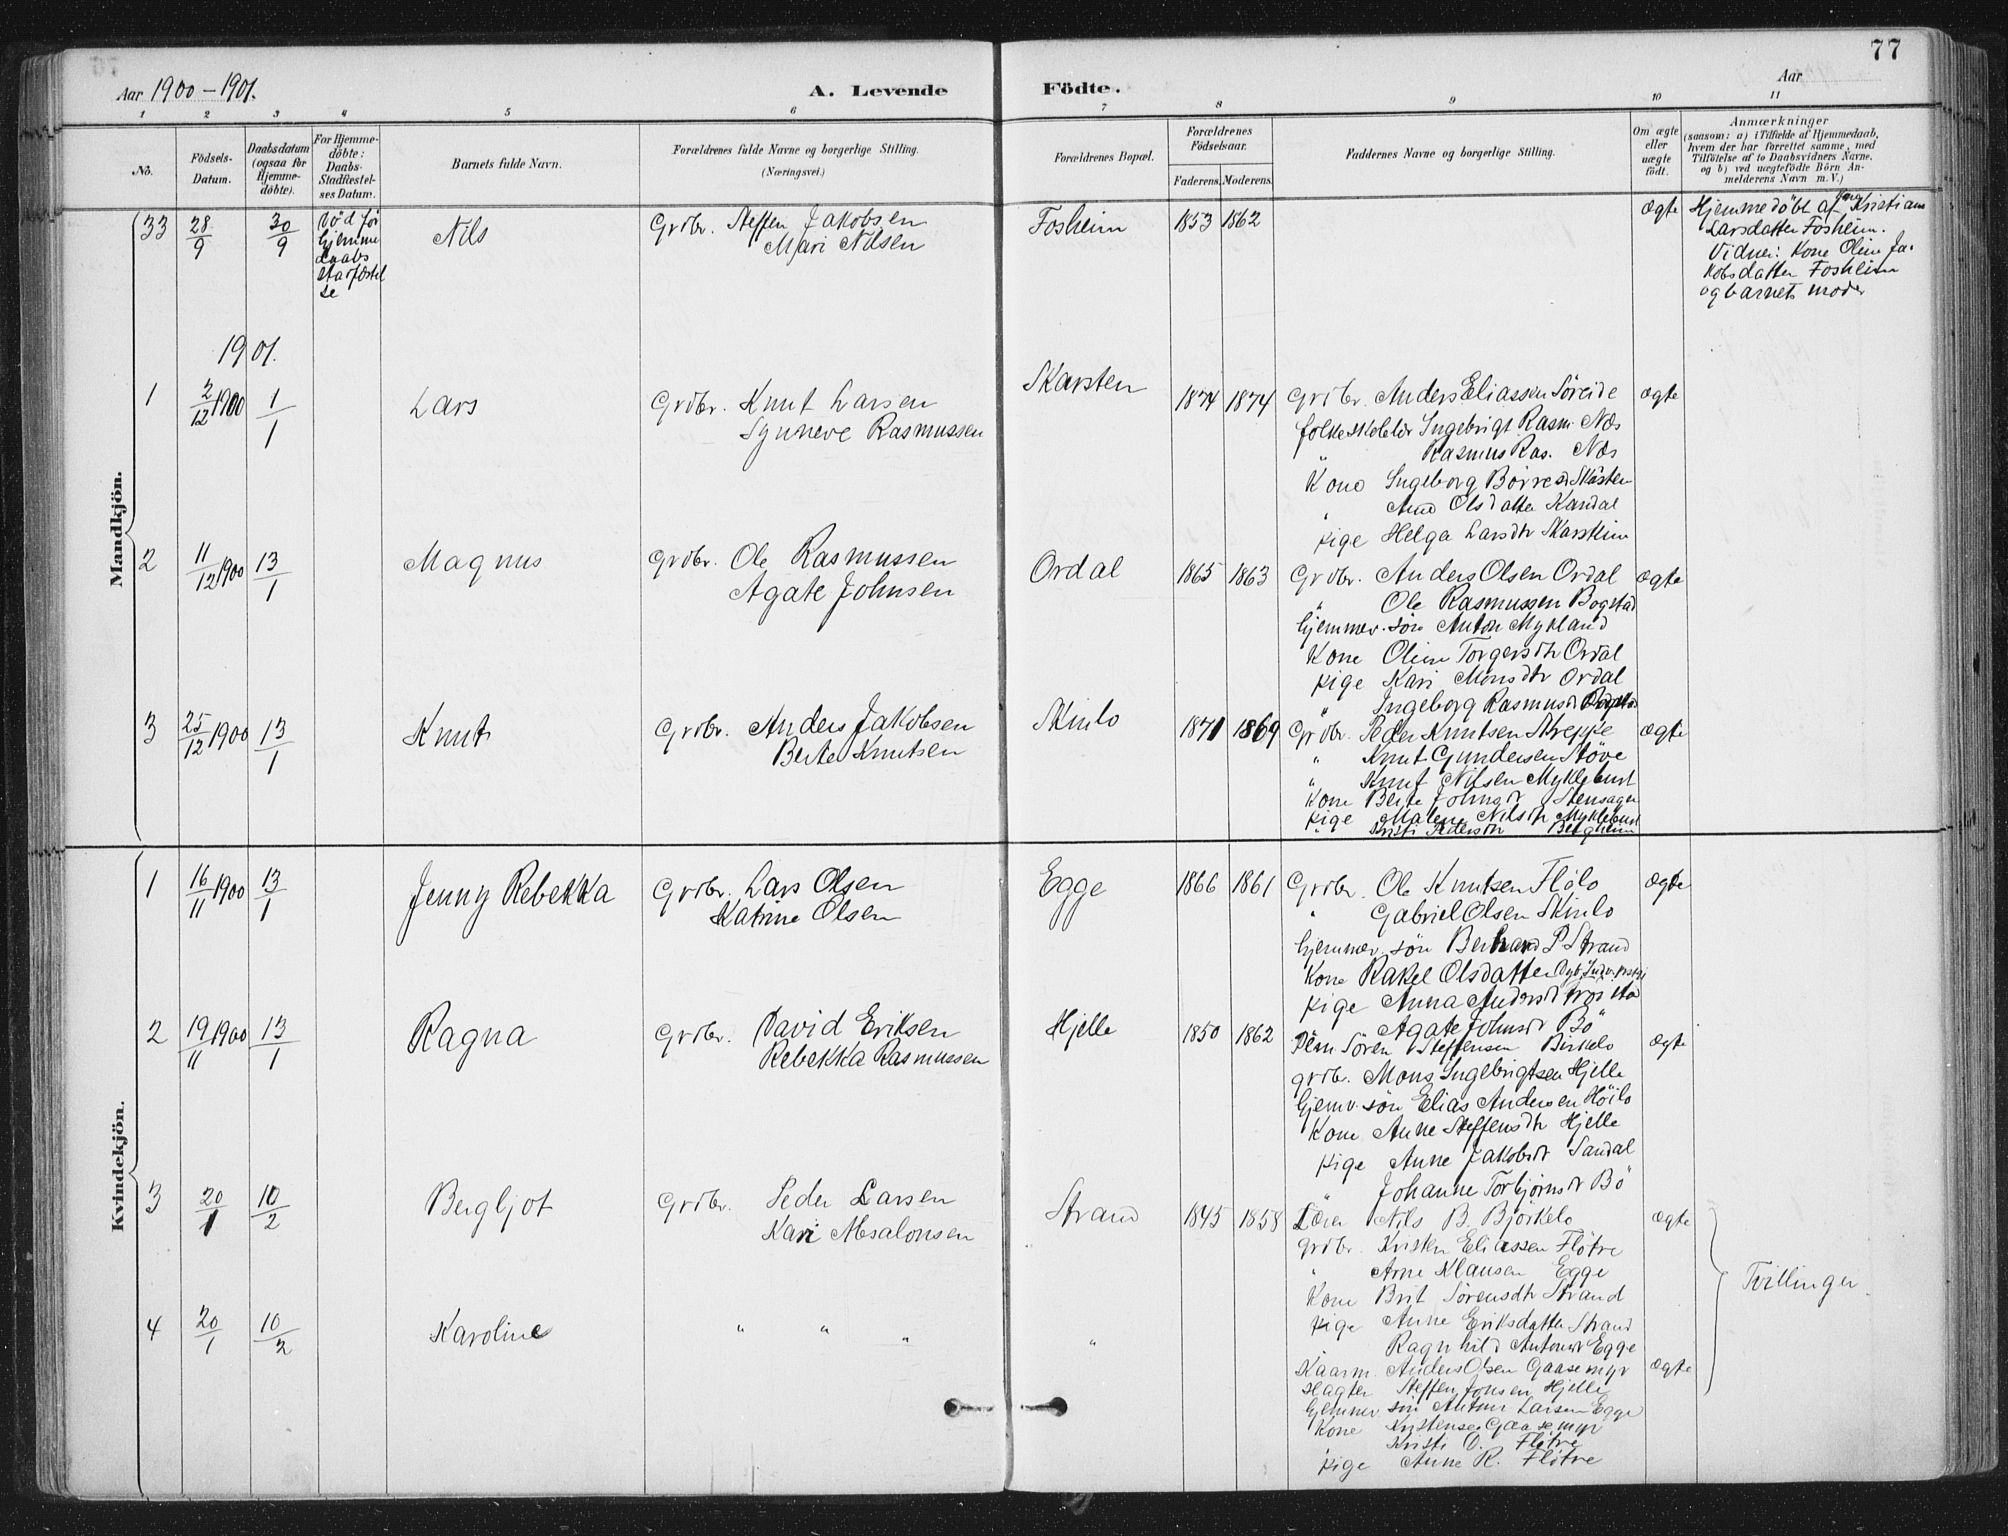 77
Aar 1900 – 1901.
A. Levende Födte.
Aar
1 2 3 4 5 6 7 8 9 10 11
No.
Födsels-Datum.
Daabsdatum (ogsaa for Hjemme-döbte).
For Hjemme-döbte: Daabs-Stadfæstel-ses Datum.
Barnets fulde Navn.
Forældrenes fulde Navne og borgerlige Stilling.
(Næringsvei.)
Forældrenes Bopæl.
Forældrenes Födselsaar.
Faderens. Moderens.
Faddernes Navne og borgerlige Stilling.
Om ægte eller uægte födt.
Anmærkninger
(saasom: a) i Tilfælde af Hjemmedaab,
hvem der har forrettet samme, med
Tilföielse af to Daabsvidners Navne,
og b) ved uægtefödte Börn An-
melderens Navn m. V.)
Mandkjön.
33 28/9 30/9 död för hjemme daabs starfæstel se Nils Grdbr. Steffen Jakobsen
Mari Nilsen
Fosheim 1853 1862 ægte
Hjemmedöbt af Kone Kristiane
Larsdatter Fosheim.
Vidner: Kone Oline Ja-
kobsdatter Fosheim
og barnets moder
1901.
1 2/12 1900 1/1 Lars Grdbr. Knut Larsen
Synneve Rasmussen
Skarsten 1874 1874 Grdbr. Anders Eliassen Söreide ægte
folkeskolelær Ingebrigt Rasm. Næs
Rasmus Ras. Næs
Kone Ingeborg Börresd Skasten
" Ane Olsdatter Kandal
pige Helga Larsdtr Skarstein
2 11/12 1900 13/1 Magnus Grdbr. Ole Rasmussen
Agate Johnsen
Ordal 1865 1863 Grdbr. Anders Olsen Ordal ægte
" Ole Rasmussen Bogstad
hjemmev. sön Anton Mykland
Kone Oline Torgersdtr Ordal
pige Kari Monsdtr Ordal
" Ingeborg Rasmusd
3 25/12 1900 13/1 Knut Grdbr. Anders Jakobsen
Berte Knutsen
Skinlo 1871 1869 Grdbr. Peder Knutsen Skreppe ægte
" Knut Gundersen Stöve
" Knut Nilsen Myklebust
Kone Berte Johnsdr Stensager
pige Malene Nilsdtr Myklebust
" Kristi Pedersdtr Bergheim
Kvindekjön.
1 16/11 1900 13/1 Jenny Rebekka Grdbr. Lars Olsen
Katrine Olsen
Egge 1866 1861 Grdbr. Ole Knutsen Flölo ægte
" Gabriel Olsen Skinlo
hjemmev. sön Bernhard P Strand
Kone Rakel Olsdatter
pige Anna Andersd
Agate Johnsdr Bö
2 19/11 1900 13/1 Ragna Grdbr. David Eriksen
Rebekka Rasmussen
Hjelle 1850 1862 Sören Steffensen Birkelo ægte
grdbr. Mons Ingebrigtsen Hjelle
hjemv. sön Elias Andersen Höilo
Kone Anne Steffensdtr Hjelle
pige Anne Jakobsdr Sandal
" Johanne Torbjörnsdr Bö
3 20/1 10/2 Bergljot Grdbr. Peder Larsen
Kari Absalonsen
Strand 1845 1858 Lærer Nils B. Björkelo ægte
Grdbr. Kristen Eliassen Flötre
" Arne Klausen Egge
Kone Brit Sörensdtr Strand
pige Anne Eriksdatter Strand
Ragnhild Antonsdr Egge
Tvillinger
4 20/1 10/2 Karoline " " "
" Kaarm. Anders Olsen Gaasemyr ægte
Slagter Steffen Jonsen Hjelle
hjemmev sön Anton Larsen Egge
Kone Kristense Gaasemyr
Kristi O. Flötre
pige Anne R. Flötre